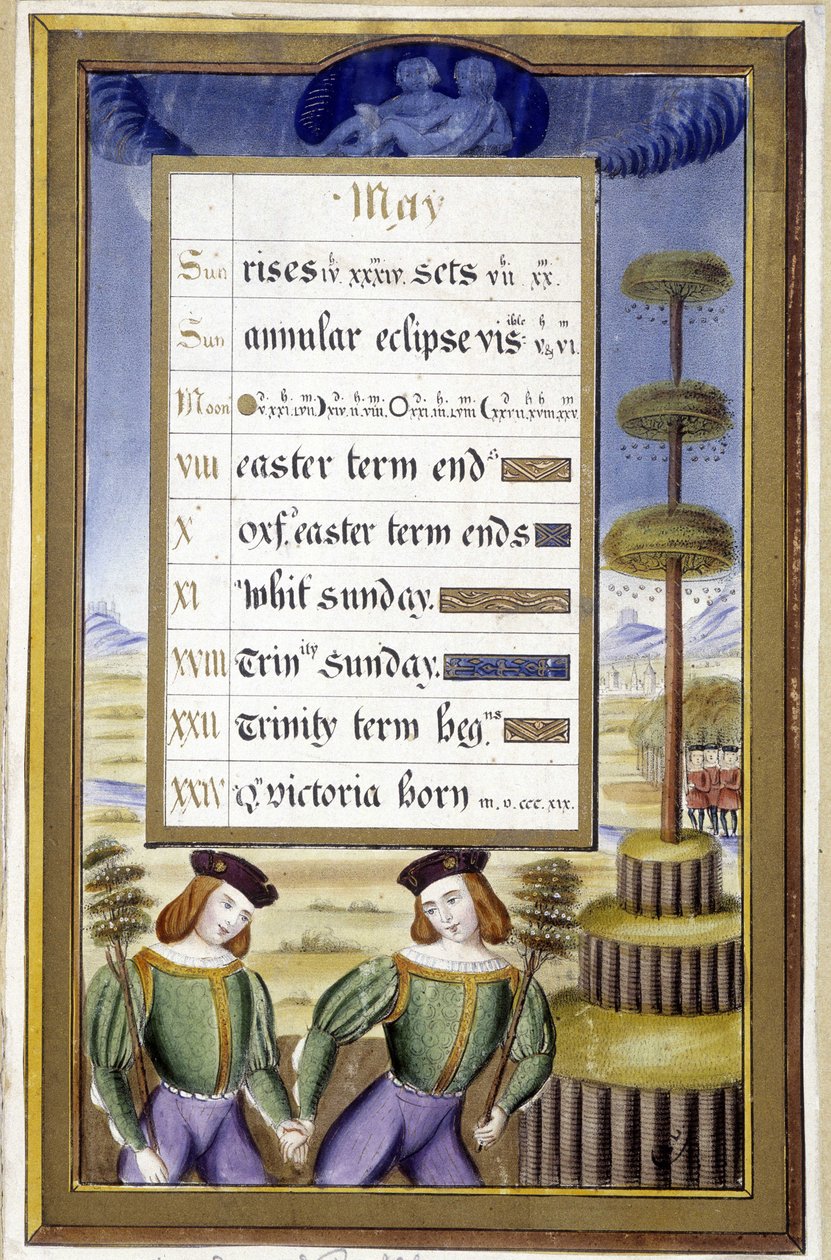 May
Sun rises iv.h xxxiv.m sets vii h xx.m
Sun annular eclipse visible h m v & vi.
Moon d. h. m. v.xxi.lvii d. h. m. xiv.ii.viii. d. h. m. xxi.iii.lviii
viii easter term ends
x oxf.d easter term ends
xi Whit sunday.
xviii Trinity Sunday.
xxii Trinity term begns
xxiv Qn Victoria born m.v.ccc.xix.